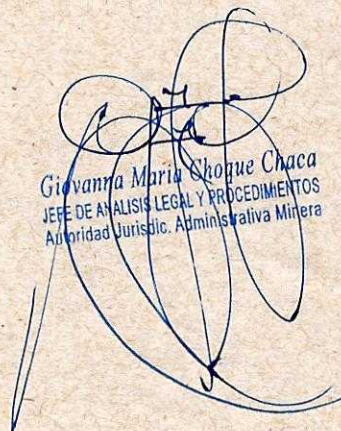 Giovanna Maria Choque Chaca
JEFE DE ANALISIS LEGAL Y PROCEDIMIENTOS
Autoridad Jurisdic. Administrativa Minera